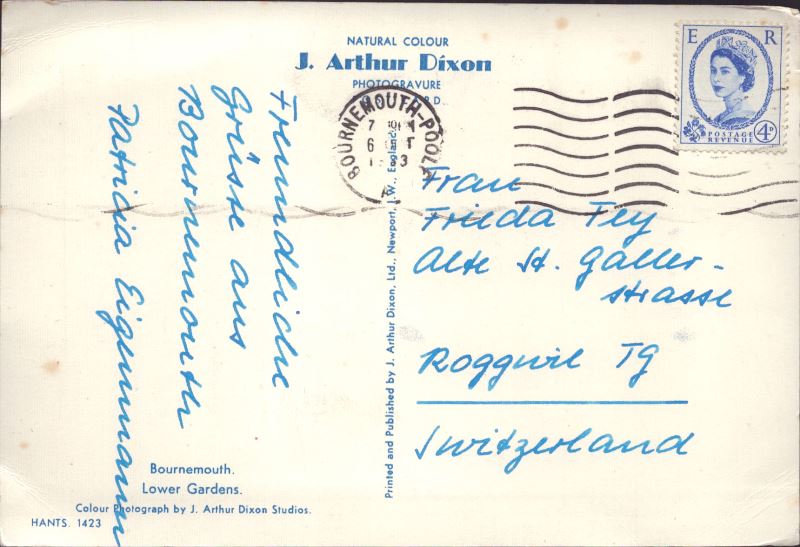 NATURAL COLOUR
J. Arthur Dixon
PHOTOGRAVURE
BOURNEMOUTH-POOLE
7
6
E R
POSTAGE
REVENUE
4D
Freundliche
Grüsse aus
Bournemouth
Patricia Eigenmann
Printed and Published by J. Arthur Dixon, Ltd., Newport, I.W., England.
Frau
Frieda Fey
Alte St. Galler-
strasse
Roggwil TG
Switzerland
Bournemouth.
Lower Gardens.
Colour Photograph by J. Arthur Dixon Studios.
HANTS. 1423